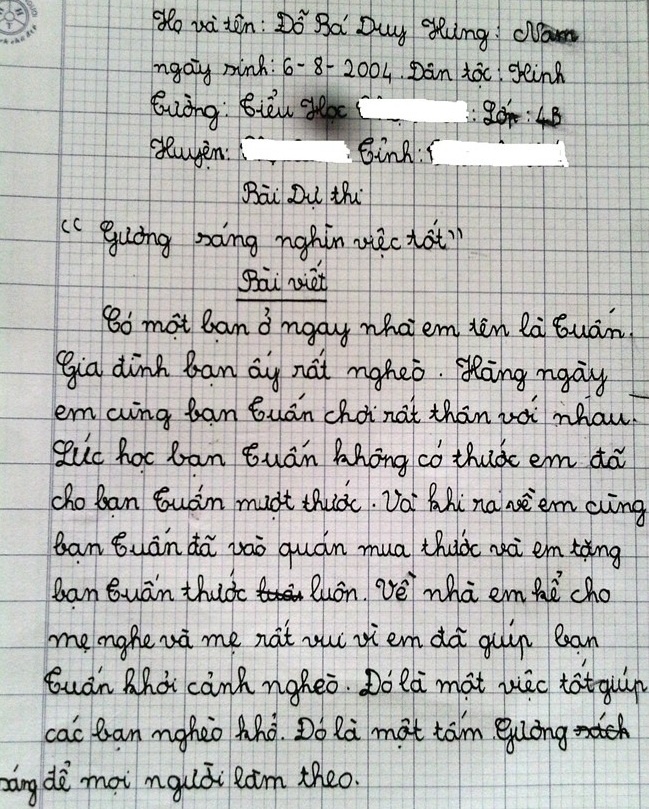 Họ và tên: Đỗ Bá Duy Hưng: Nam
ngày sinh: 6-8-2004. Dân tộc: Kinh
Trường: Tiểu Học : Lớp: 4B
Huyện: Tỉnh:
Bài Dự thi
"Gương sáng nghìn việc tốt"
Bài viết
Có một bạn ở ngay nhà em tên là Tuấn.
Gia đình bạn ấy rất nghèo. Hàng ngày
em cùng bạn Tuấn chơi rất thân với nhau.
Lúc học bạn Tuấn không có thước em đã
cho bạn Tuấn mượt thước. Và khi ra về em cùng
bạn Tuấn đã vào quán mua thước và em tặng
bạn Tuấn thước luôn. Về nhà em kể cho
mẹ nghe và mẹ rất vui vì em đã giúp bạn
Tuấn khởi cảnh nghèo. Đó là một việc tốt giúp
các bạn nghèo khổ. Đó là một tấm Gương sách
sáng để mọi người làm theo.